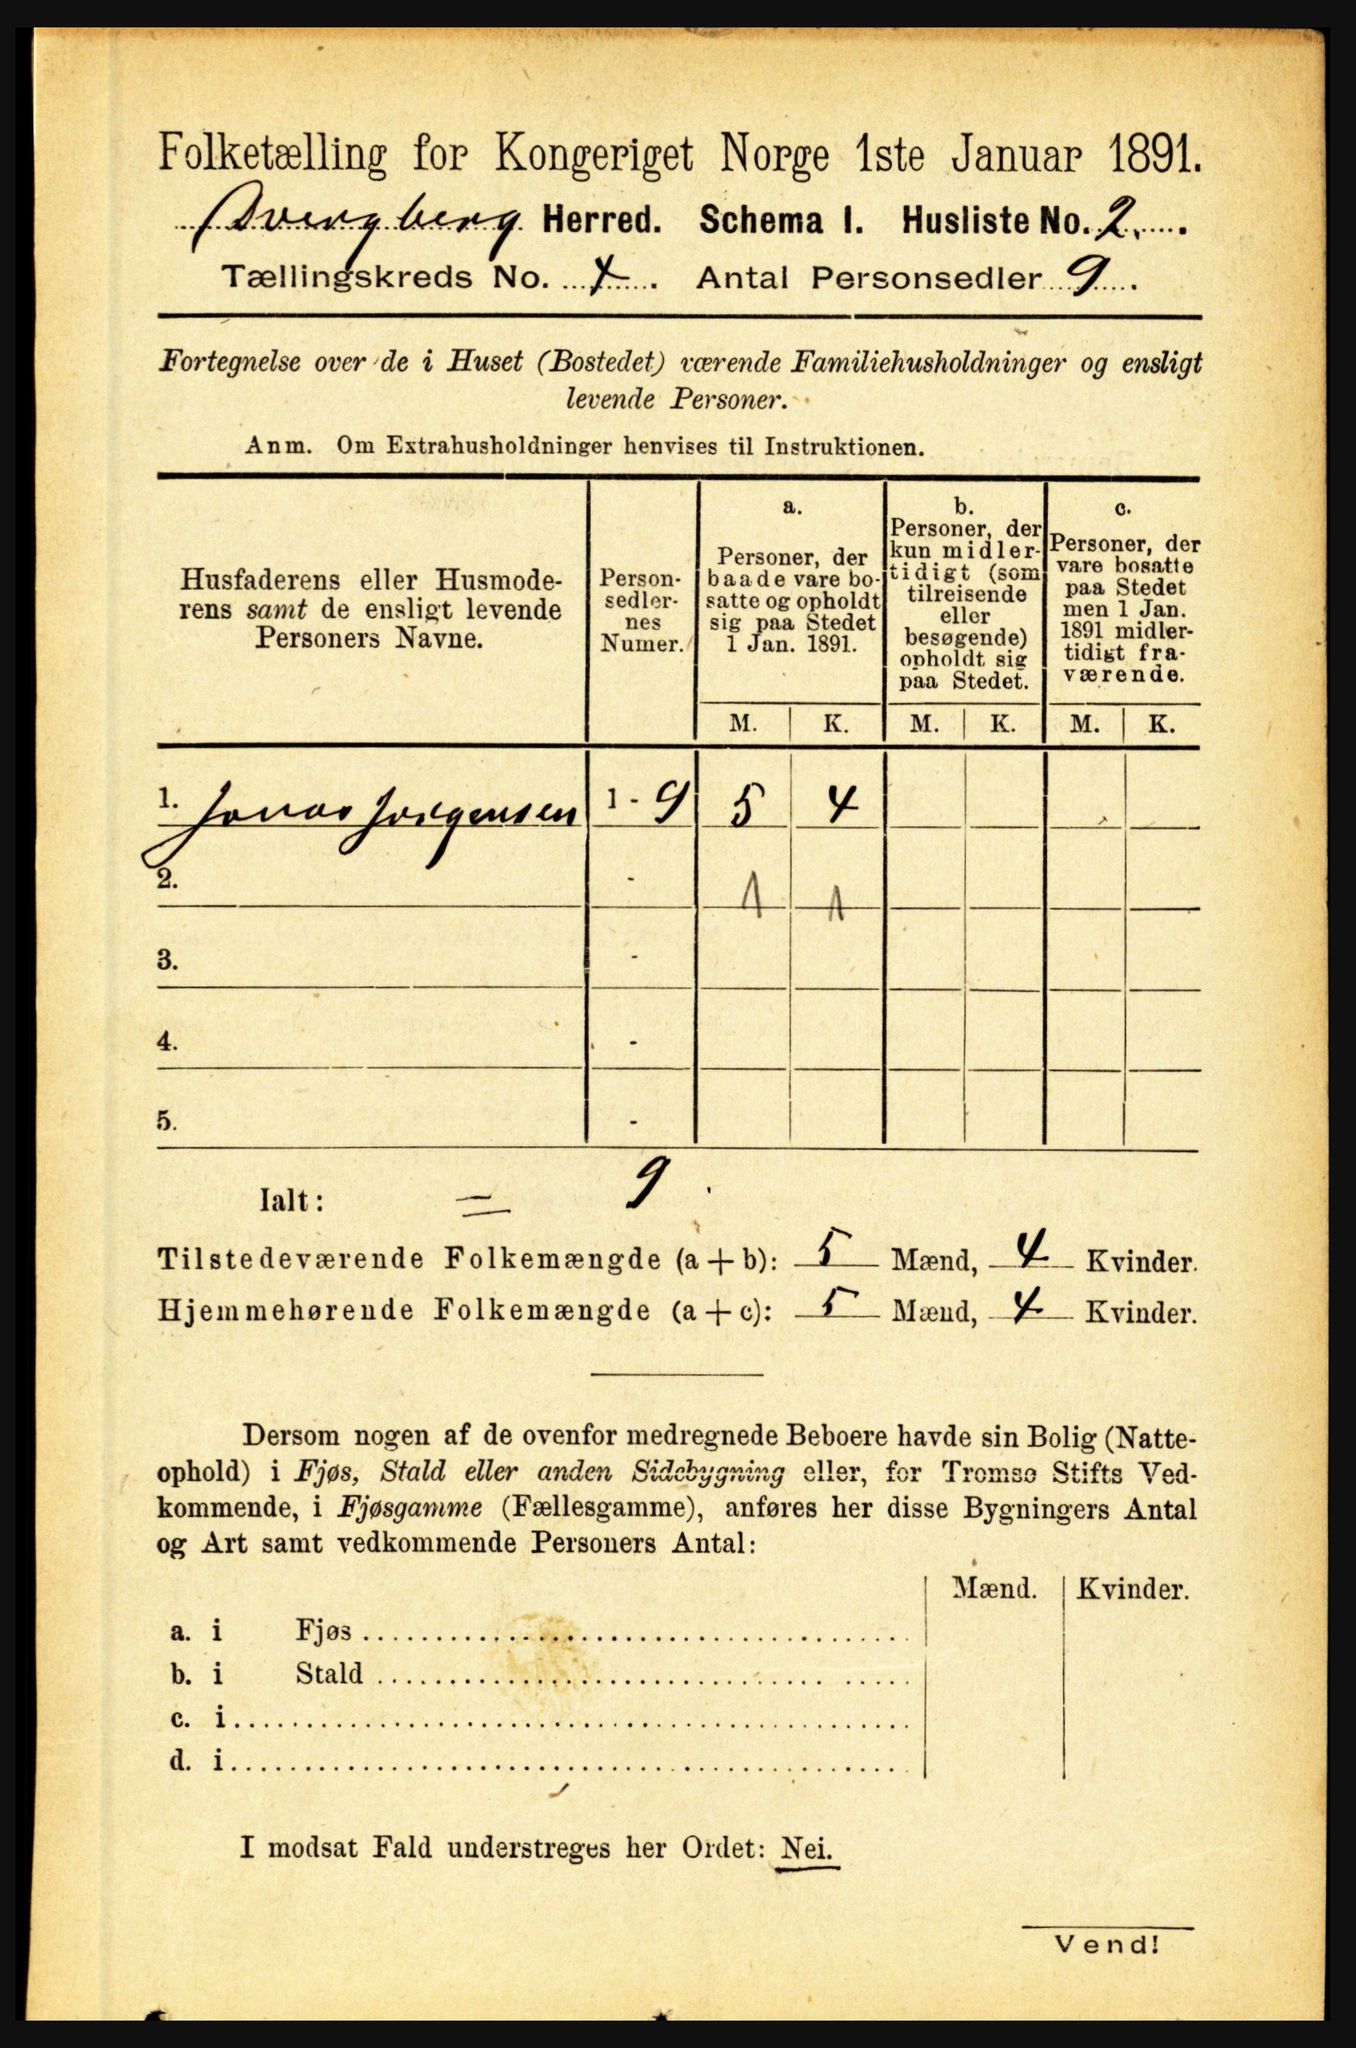 Folketælling for Kongeriget Norge 1ste Januar 1891.
Dverberg Herred. Schema I. Husliste No. 2.
Tællingskreds No. 4. Antal Personsedler 9.
Fortegnelse over de i Huset (Bostedet) værende Familiehusholdninger og ensligt
levende Personer.
Anm. Om Extrahusholdninger henvises til Instruktionen.
Husfaderens eller Husmode-
rens samt de ensligt levende
Personers Navne.
Person-
sedler-
nes
Numer.
a.
Personer, der
baade vare bo-
satte og opholdt
sig paa Stedet
1 Jan. 1891.
b.
Personer, der
kun midler-
tidigt (som
tilreisende
eller
besøgende)
opholdt sig
paa Stedet.
c.
Personer, der
vare bosatte
paa Stedet
men 1 Jan.
1891 midler-
tidigt fra-
værende.
M. K. M. K. M. K.
1. Jonas Jørgensen 1 - 9 5 4
2. - 1 1
3. -
4. -
5. -
Ialt: = 9.
Tilstedeværende Folkemængde (a + b): 5 Mænd, 4 Kvinder.
Hjemmehørende Folkemængde (a + c): 5 Mænd, 4 Kvinder.
Dersom nogen af de ovenfor medregnede Beboere havde sin Bolig (Natte-
ophold) i Fjøs, Stald eller anden Sidebygning eller, for Tromsø Stifts Ved-
kommende, i Fjøsgamme (Fællesgamme), anføres her disse Bygningers Antal
og Art samt vedkommende Personers Antal:
Mænd. Kvinder.
a. i Fjøs
b. i Stald
c. i
d. i
I modsat Fald understreges her Ordet: Nei.
Vend!